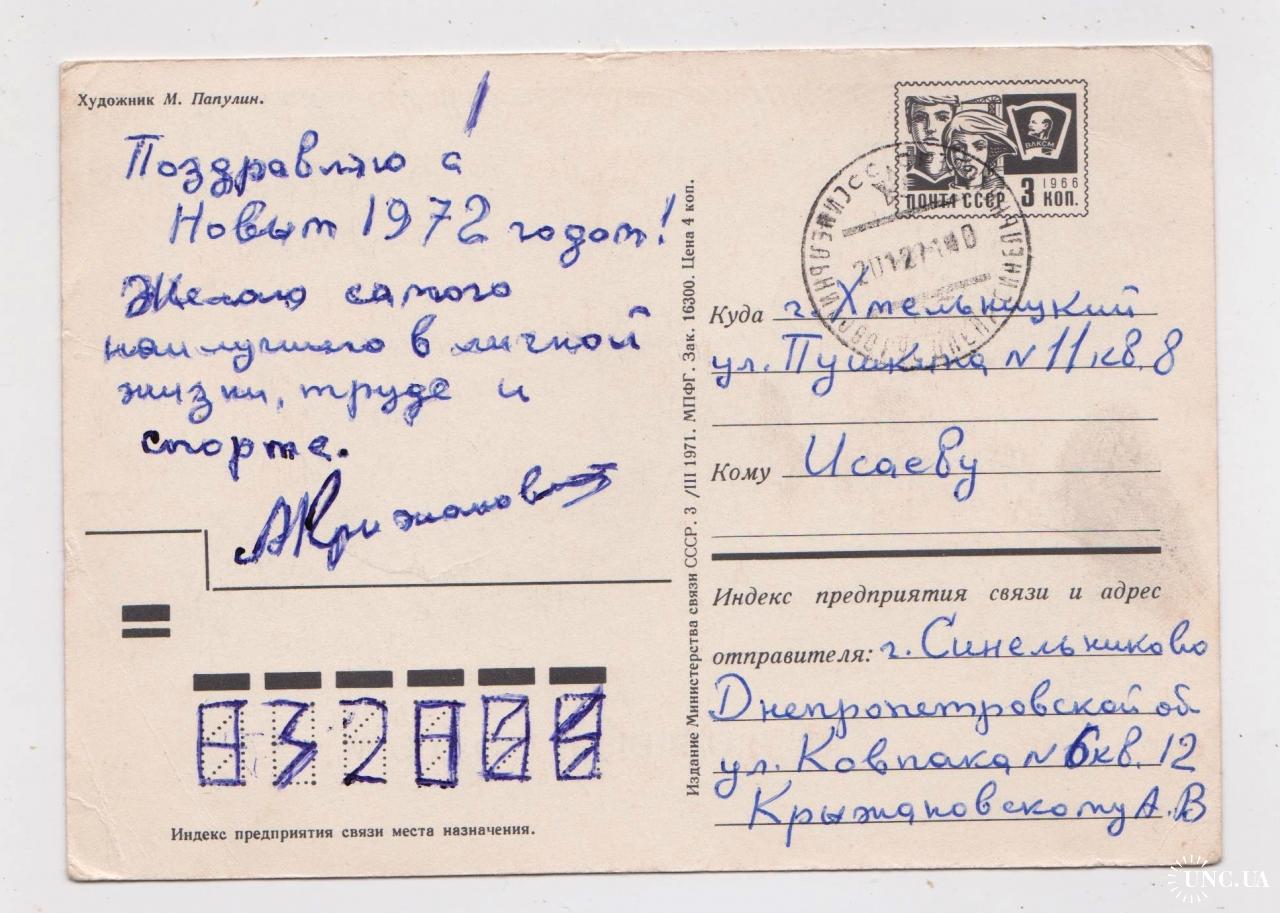 Художник М. Папулин.
Поздравляю с
Новым 1972 годом!
Желаю самого
наилучшего в личной
жизни, труде и
спорте.
АКрижановс
Индекс предприятия связи места назначения.
Издание Министерства связи СССР. 3 /III 1971. МПФГ. Зак. 16300. Цена 4 коп.
ВЛКСМ
1966
ПОЧТА СССР 3 КОП.
Куда г. Хмельницкий
ул. Пушкина № 11 кв. 8
Кому Исаеву
Индекс предприятия связи и адрес
отправителя: г. Синельниково
Днепропетровской об
ул. Ковпака № 6 кв. 12
Крыжановскому А. В
UNC.UA